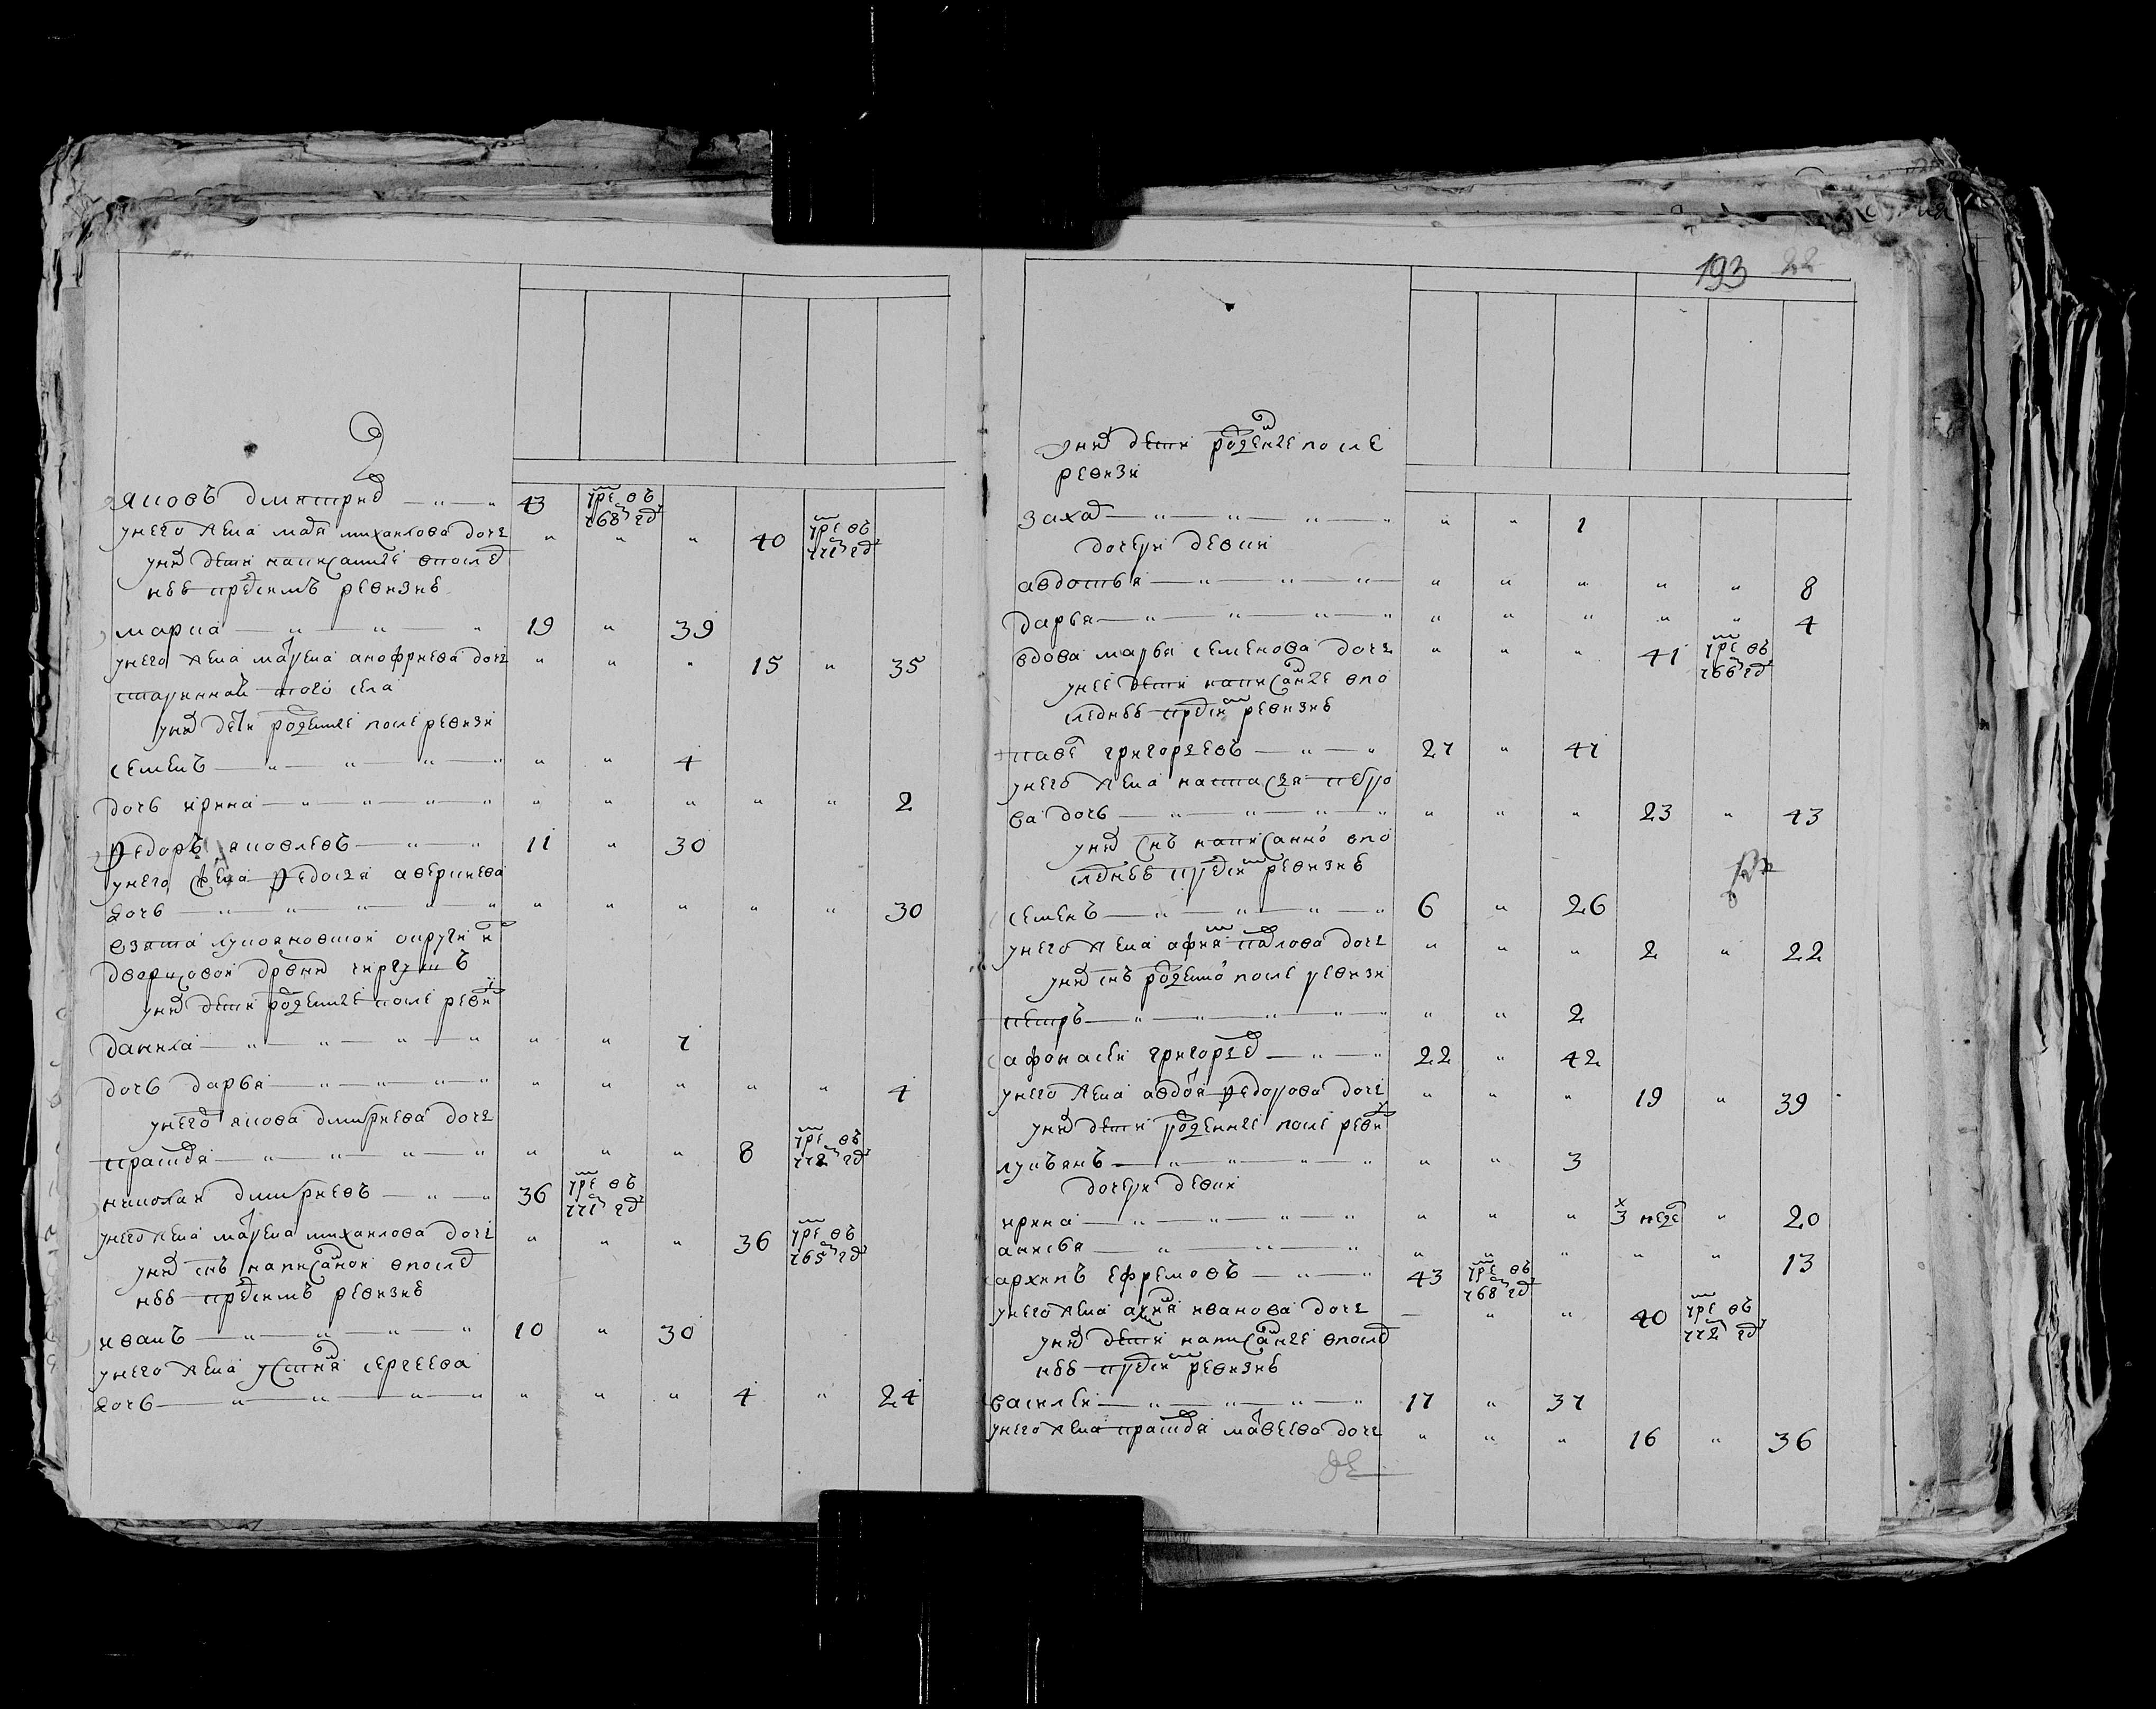 2
Яковъ дмитриев 43 умре въ 768 гд
у него жена мария михаилова дочь " " " 40 умре въ 771 гд
у них дети написанные в послед
ней пред сим ревизие
марка " " " 19 " 39
у него жена матрена анофриева дочь " " " 15 " 35
старинная того села
у них дети рожденные после ревизи
семенъ " " " " " " 4
дочь ирина " " " " " " " " " 2
федоръ яковлевъ " " 11 " 30
у него жена федосья аверкиева
дочь " " " " " " " " " " 30
взята лукояновской округи из
дворцовой деревни
у них дети рожденные после ревизи
данила " " " " " " 7
дочь дарья " " " " " " " " 4
у него якова дмитриева дочь
прасковья " " " " " " " 8 умре въ 772 гд
николай дмитриевъ " " 36 умре въ 771 гд
у него жена матрена михаилова дочь " " " 36 умре въ 765 гд
у них сын написаной в послед
ней пред сим ревизие
иванъ " " " " 10 " 30
у него жена устинья сергеева
дочь " " " " " " " 4 " 24
193 22
у них дети рожденные после
ревизи
захар " " " " " " 1
дочери девки
авдотья " " " " " " " " 8
дарья " " " " " " " " " 4
вдова марья семенова дочь " " " 41 умре въ 766 гд
у нее дети написанные в по
следней пред сим ревизие
павел григорьевъ " " 27 " 47
у него жена настасья петро
ва дочь " " " " " " " 23 " 43
у них сын написанной в по
следней пред сим ревизие
семенъ " " " " 6 " 26
у него жена афимья павлова дочь " " " 2 " 22
у них сын рожденной после ревизи
петръ " " " " " " " 2
афонасеи григорьев " " 22 " 42
у него жена авдотья федорова дочь " " " 19 " 39
у них дети рожденные после ревизи
лукьянъ " " " " " " 3
дочери девки
ирина " " " " " " " 3 неде " 20
анисья " " " " " " " " 13
архипъ ефремовъ " " 43 умре въ 768 гд
у него жена иванова дочь — " " 40 умре въ 772 гд
у них дети написанные в послед
ней пред сим ревизие
василеи " " " " 17 " 37
у него жена прасковья матвеева дочь " " " 16 " 36